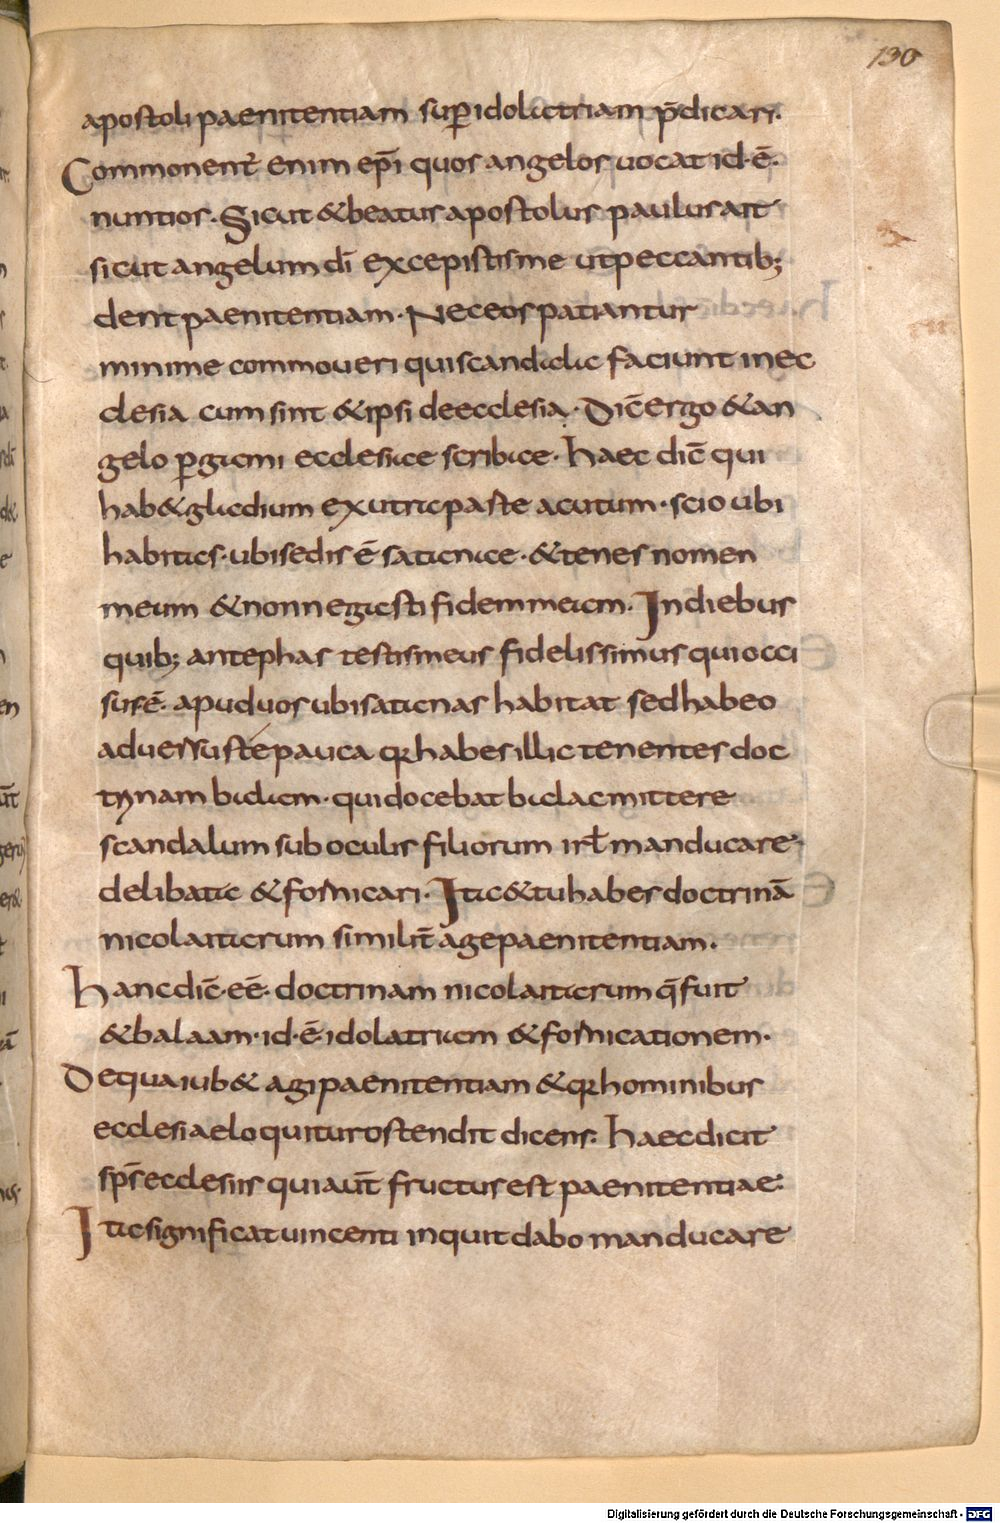 130
apostoli paenitentiam sup̄ idolatriam p̄dicari.
Commonent̄ enim ep̄i quos angelos uocat id·ē·
nuntios· Sicut &beatus apostolus paulus ait
sicut angelum dī excepistis me ut peccantib;
dent paenitentiam· Nec eos patiantur
minime commoueri qui scandala faciunt in ec
clesia cum sint &ipsi de ecclesia· Dic̄ ergo &an
gelo p̄gami ecclesiae scribae· haec dic̄ qui
hab& gladium ex utraq paste acutum· scio ubi
habitas· ubi sedis ē satanae· &tenes nomen
meum &non negasti fidem meam· In diebus
quib; antephas testis meus fidelissimus qui occi
sus ē· apud uos ubi satanas habitat sed habeo
aduersus te pauca qr habes illic tenentes doc
trynam balam· qui docebat balac mittere
scandalum sub oculis filiorum irł manducare
delibatic &fornicari· Ita &tu habes doctrinā
nicolaitarum similit̄ age paenitentiam·
Hanc dic̄·eē· doctrinam nicolaitarum q̄ fuit
&balaam·id·ē·idolatriam &fornicationem·
De qua iub& agi paenitentiam &qr hominibus
ecclesiae loquitur ostendit dicens· haec dicit
sp̄s ecclesiis qui aūt fructus est paenitentiae·
Ita significat uincenti inquit dabo manducare
Digitalisierung gefördert durch die Deutsche Forschungsgemeinschaft - DFG